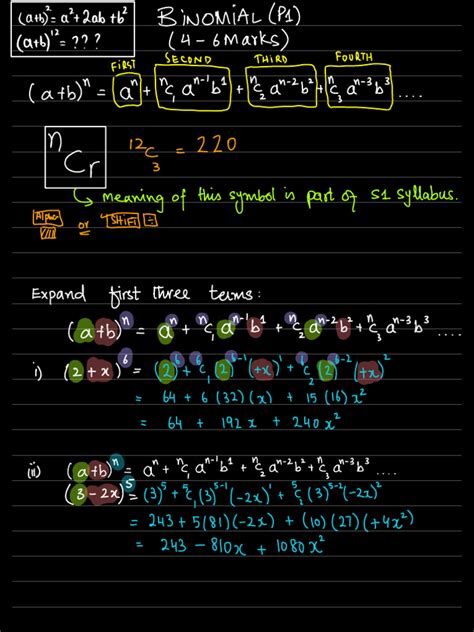 (a+b)² = a²+2ab+b²
(a+b)¹² = ? ? ?
BINOMIAL (P1)
(4 – 6 Marks)
FIRST SECOND THIRD FOURTH
(a+b)ⁿ = aⁿ + ⁿC₁ aⁿ⁻¹b¹ + ⁿC₂ aⁿ⁻²b² + ⁿC₃ aⁿ⁻³b³ ....
ⁿCr ¹²C₃ = 220
meaning of this symbol is part of S1 syllabus.
Alpha or SHIFT ÷
Expand first three terms:
(a+b)ⁿ = aⁿ + ⁿC₁ aⁿ⁻¹b¹ + ⁿC₂ aⁿ⁻²b² + ⁿC₃ aⁿ⁻³b³ ....
i) (2+x)⁶ = (2)⁶ + ⁶C₁ (2)⁶⁻¹(+x)¹ + ⁶C₂ (2)⁶⁻²(+x)²
= 64 + 6(32)(x) + 15(16)x²
= 64 + 192x + 240x²
(ii) (a+b)ⁿ = aⁿ + ⁿC₁ aⁿ⁻¹b¹ + ⁿC₂ aⁿ⁻²b² + ⁿC₃ aⁿ⁻³b³ ....
(3-2x)⁵ = (3)⁵ + ⁵C₁(3)⁵⁻¹(-2x)¹ + ⁵C₂(3)⁵⁻²(-2x)²
= 243 + 5(81)(-2x) + (10)(27)(+4x²)
= 243 - 810x + 1080x²